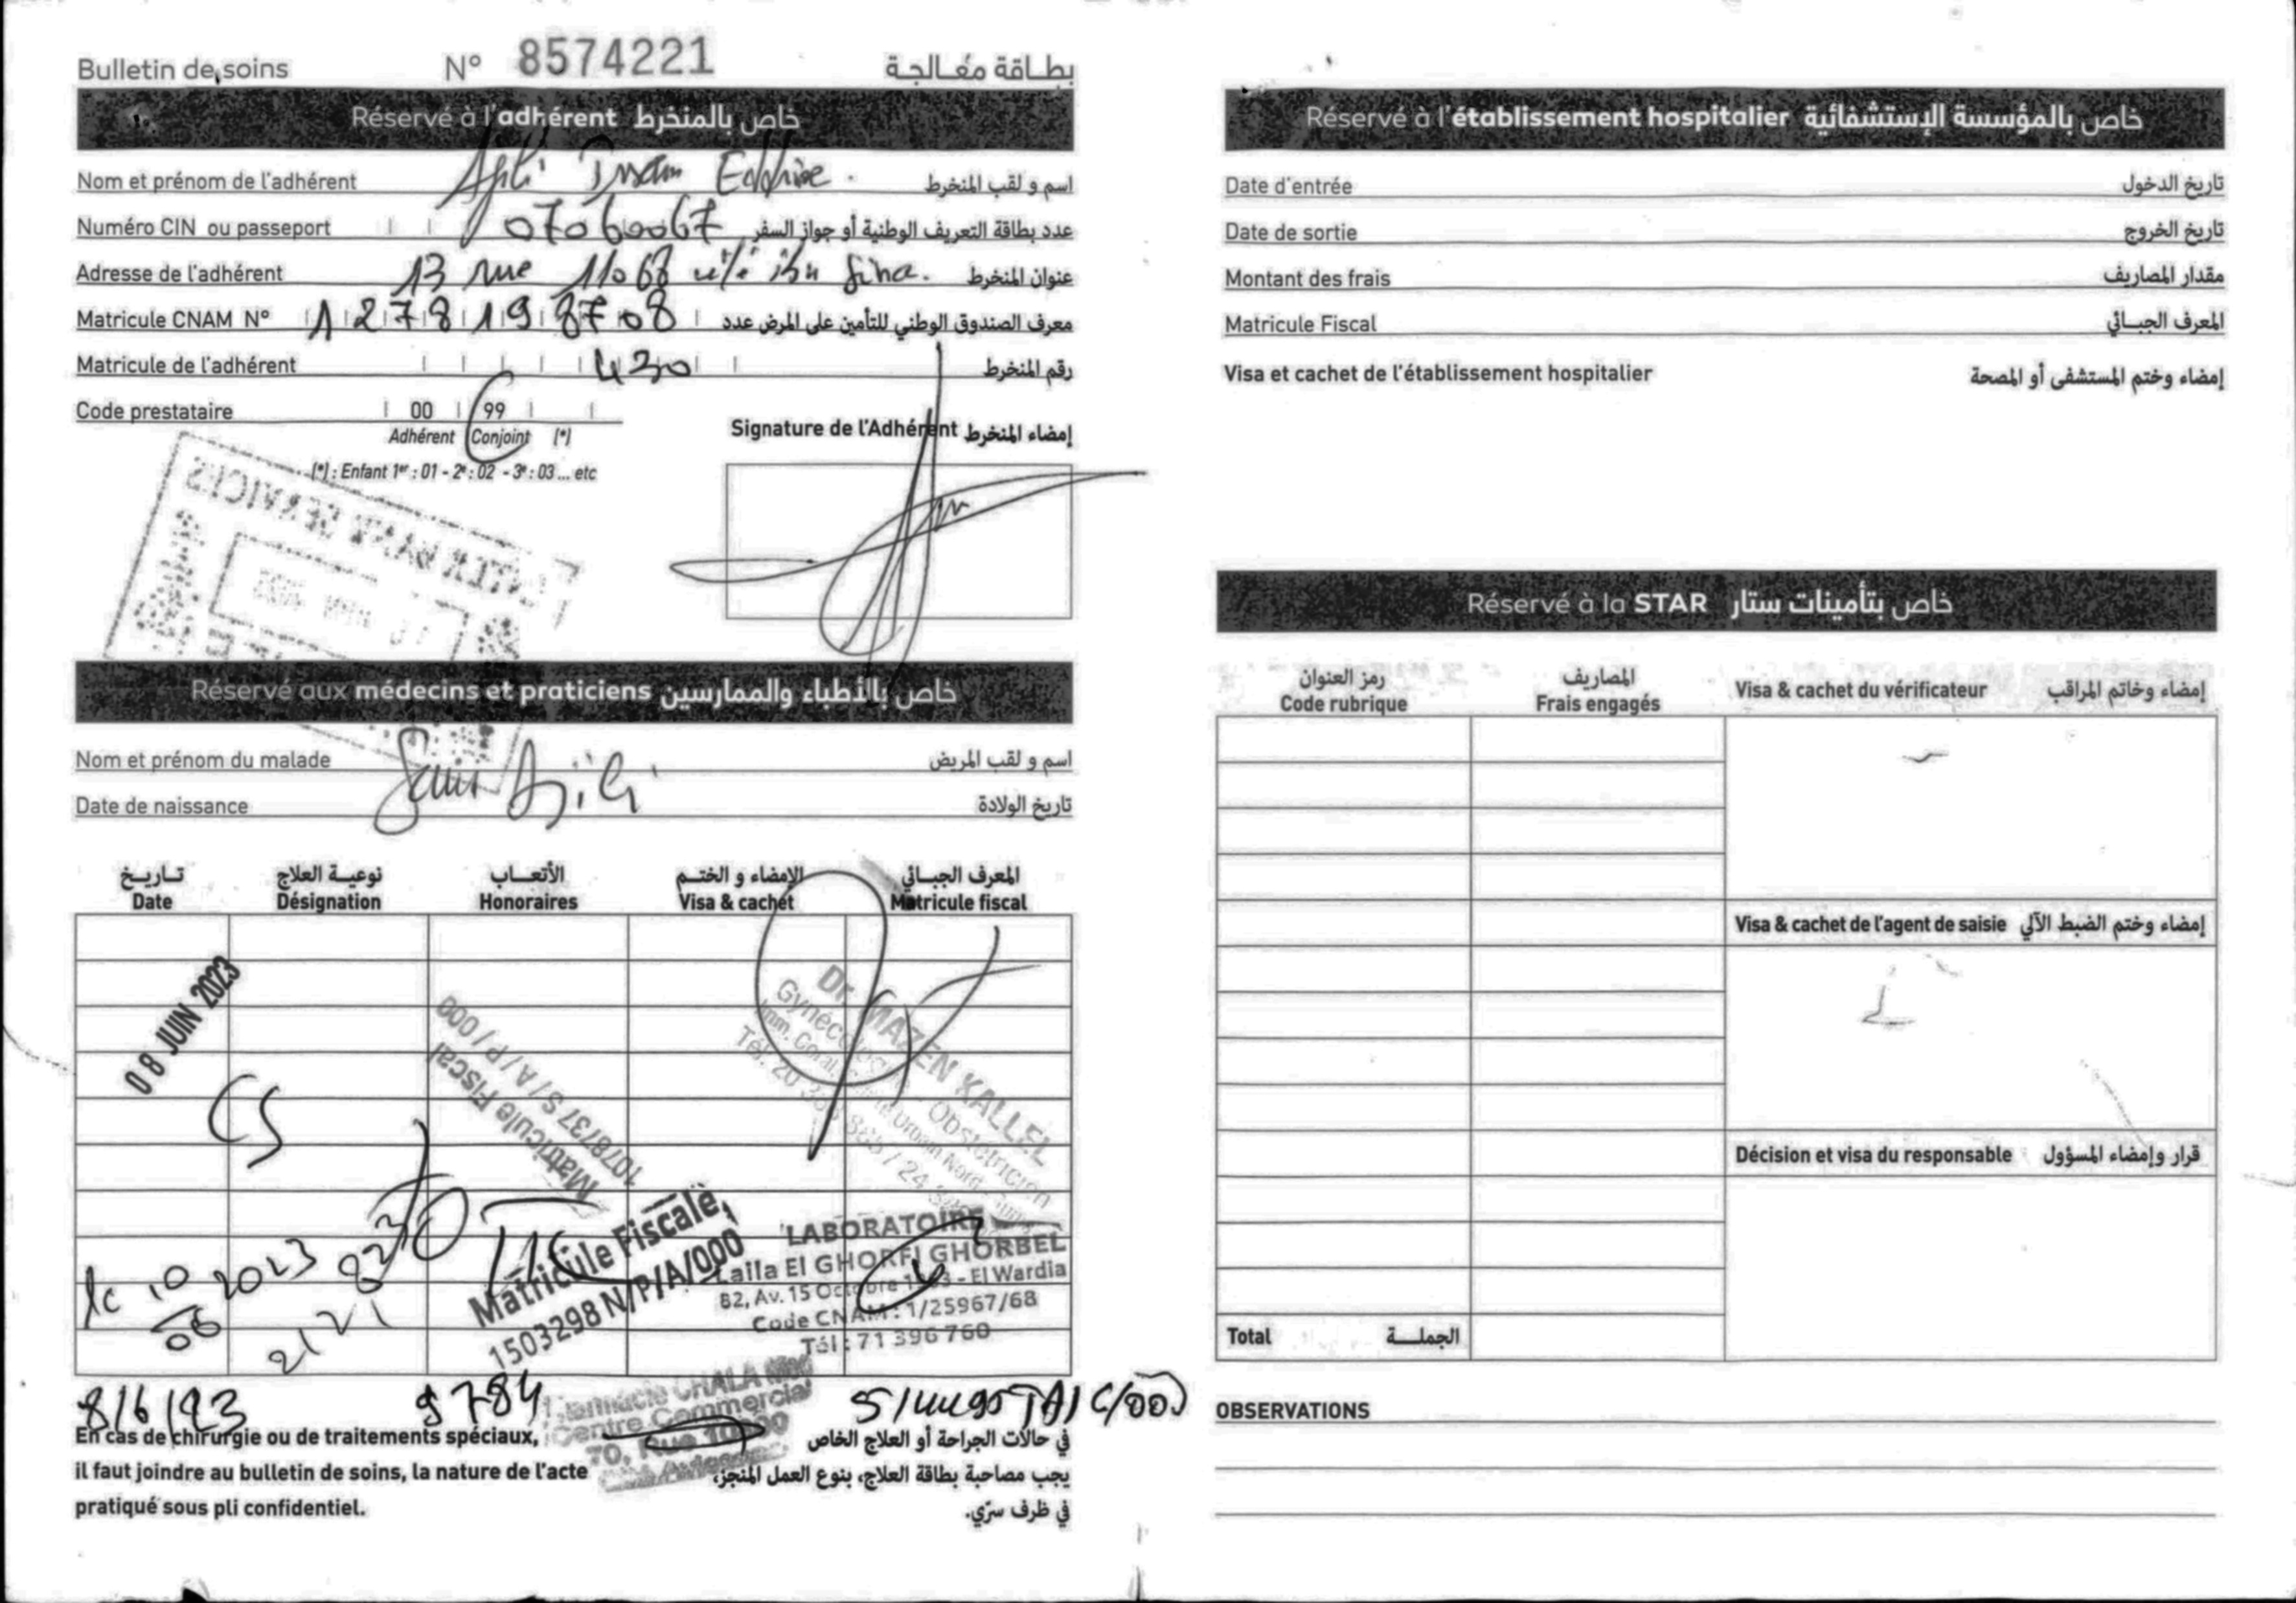 Bulletin de soins N° 8574221 بطاقة مُعالجة
Réservé à l'adhérent خاص بالمنخرط
Nom et prénom de l'adhérent اسم و لقب المنخرط
Numéro CIN ou passeport 07060067 عدد بطاقة التعريف الوطنية أو جواز السفر
Adresse de l'adhérent 13 rue 11068 cité ibn Sina. عنوان المنخرط
Matricule CNAM N° 1278198708 معرف الصندوق الوطني للتأمين على المرض عدد
Matricule de l'adhérent 430 رقم المنخرط
Code prestataire 00 99
Adhérent Conjoint (*)
(*) : Enfant 1er : 01 - 2e : 02 - 3e : 03 ... etc
Signature de l'Adhérent إمضاء المنخرط
Réservé aux médecins et praticiens خاص بالأطباء والممارسين
Nom et prénom du malade اسم و لقب المريض
Date de naissance تاريخ الولادة
تاريخ نوعية العلاج الأتعاب الإمضاء و الختم المعرف الجبائي
Date Désignation Honoraires Visa & cachet Matricule fiscal
08 JUIN 2023
CS
Matricule Fiscal
1078737 S/A/P/000
Dr. MAZEN KALLEL
Gynécologue - Obstétricien
le 10 06 2023
Matricule Fiscale
1503298 N/P/A/000
LABORATOIRE
Laila El GHORFI GHORBEL
82, Av. 15 Octobre 1963 - El Wardia
Code CNAM : 1/25967/68
Tél : 71 396 760
8/6/23 9784
Pharmacie CHALA Med
Centre Commercial
70, Rue
En cas de chirurgie ou de traitements spéciaux,
il faut joindre au bulletin de soins, la nature de l'acte
pratiqué sous pli confidentiel.
في حالات الجراحة أو العلاج الخاص
يجب مصاحبة بطاقة العلاج، بنوع العمل المنجز،
في ظرف سرّي.
Réservé à l'établissement hospitalier خاص بالمؤسسة الإستشفائية
Date d'entrée تاريخ الدخول
Date de sortie تاريخ الخروج
Montant des frais مقدار المصاريف
Matricule Fiscal المعرف الجبائي
Visa et cachet de l'établissement hospitalier إمضاء وختم المستشفى أو المصحة
Réservé à la STAR خاص بتأمينات ستار
رمز العنوان المصاريف
Code rubrique Frais engagés
Visa & cachet du vérificateur إمضاء وخاتم المراقب
Visa & cachet de l'agent de saisie إمضاء وختم الضبط الآلي
Décision et visa du responsable قرار وإمضاء المسؤول
Total الجملة
OBSERVATIONS